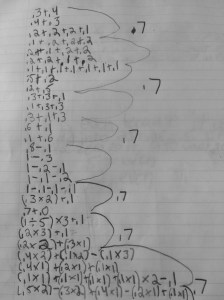 .3+.4
.4+.3
.2+.2+.2+.1
.1+.2+.2+.2
.2+.1+.2+.2
.2+.2+.1+.2
.1+.1+.1+.1+.1+.1+.1
.5+.2
.2+.5
.3+.3+.1
.1+.3+.3
.3+.1+.3
.6+.1
.1+.6
.8-.1
1-.3
1-.2-.1
1-.1-.2
1-.1-.1-.1
(.3×2)+.1
.7+0
(1÷5)×3+.1
(.2×3)+.1
(.2×2)+(.3×1)
(.4×2)+(.1×2)-(.1×3)
(.4×1)+(.2×1)+(.1×1)
×2-.1
.7
.7
.7
.7
.7
.7